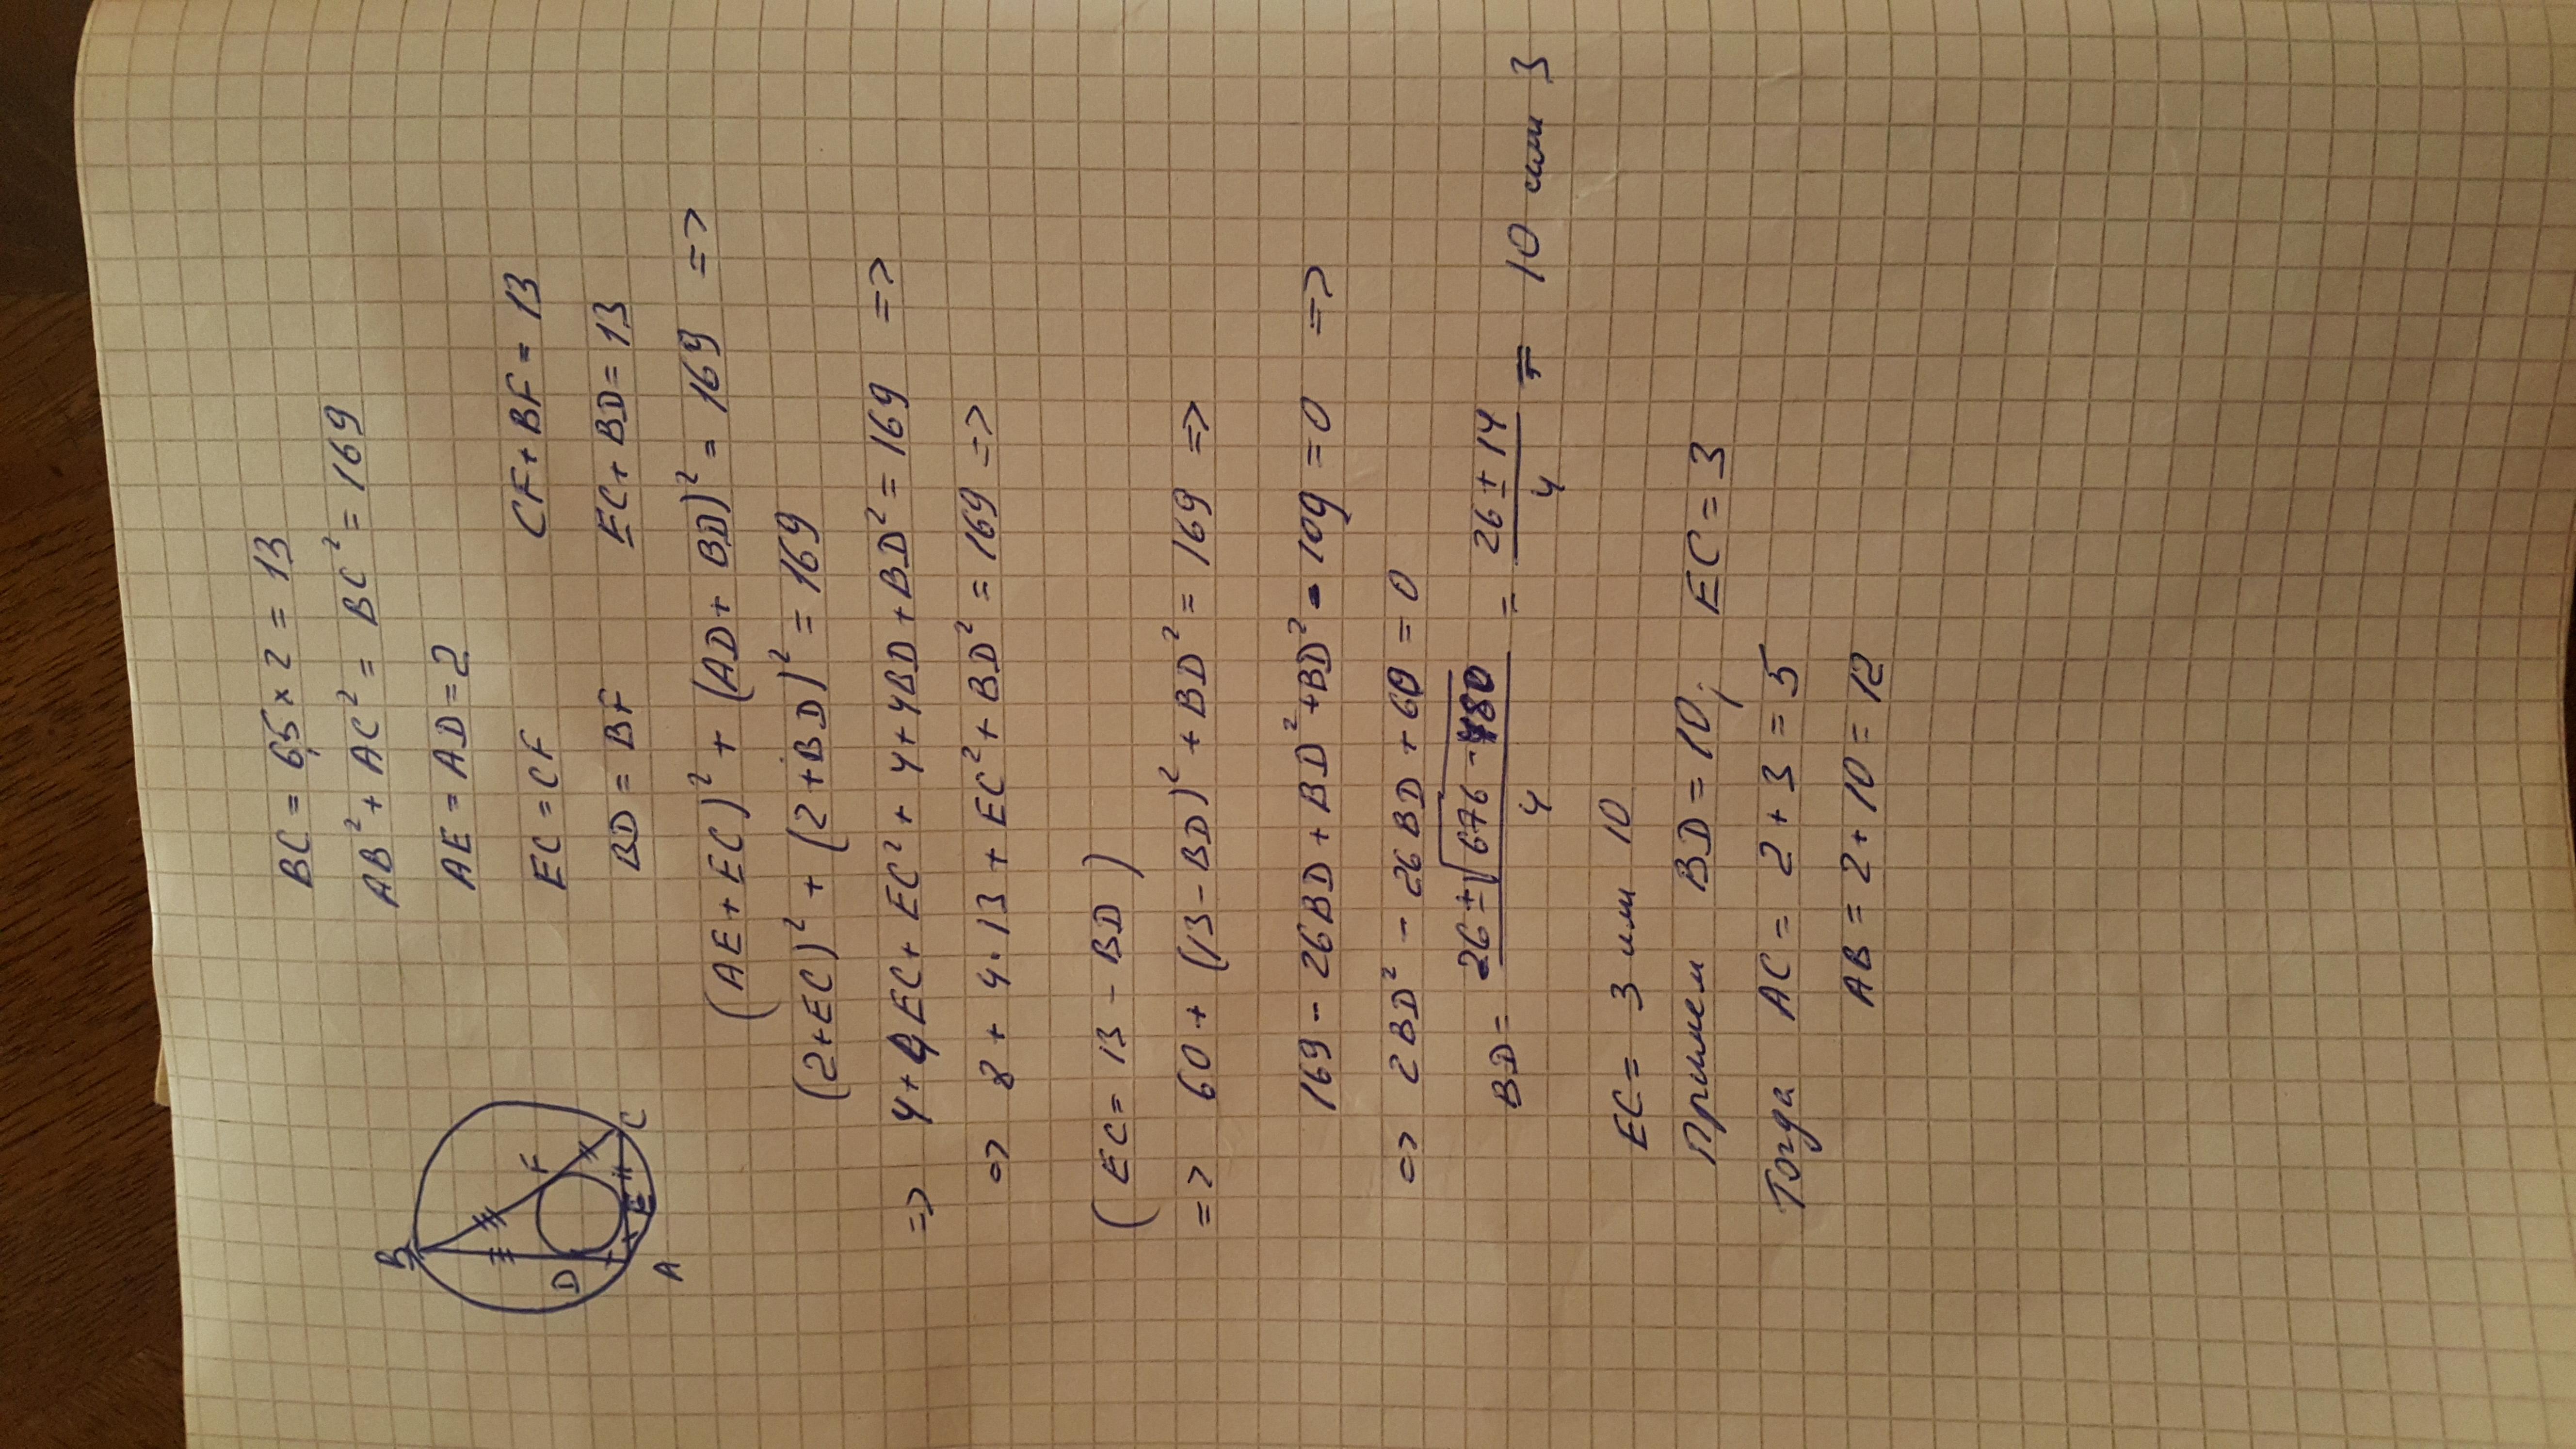 B
D
F
A
E
C
BC = 6,5 × 2 = 13
AB² + AC² = BC² = 169
AE = AD = 2
EC = CF CF + BF = 13
BD = BF EC + BD = 13
(AE + EC)² + (AD + BD)² = 169 =>
(2 + EC)² + (2 + BD)² = 169
=> 4 + 4EC + EC² + 4 + 4BD + BD² = 169 =>
=> 8 + 4·13 + EC² + BD² = 169 =>
(EC = 13 - BD)
=> 60 + (13 - BD)² + BD² = 169 =>
169 - 26BD + BD² + BD² - 109 = 0 =>
=> 2BD² - 26BD + 60 = 0
BD = 26 ± √676 - 480 / 4 = 26 ± 14 / 4 = 10 или 3
EC = 3 или 10
Примем BD = 10; EC = 3
Тогда AC = 2 + 3 = 5
AB = 2 + 10 = 12